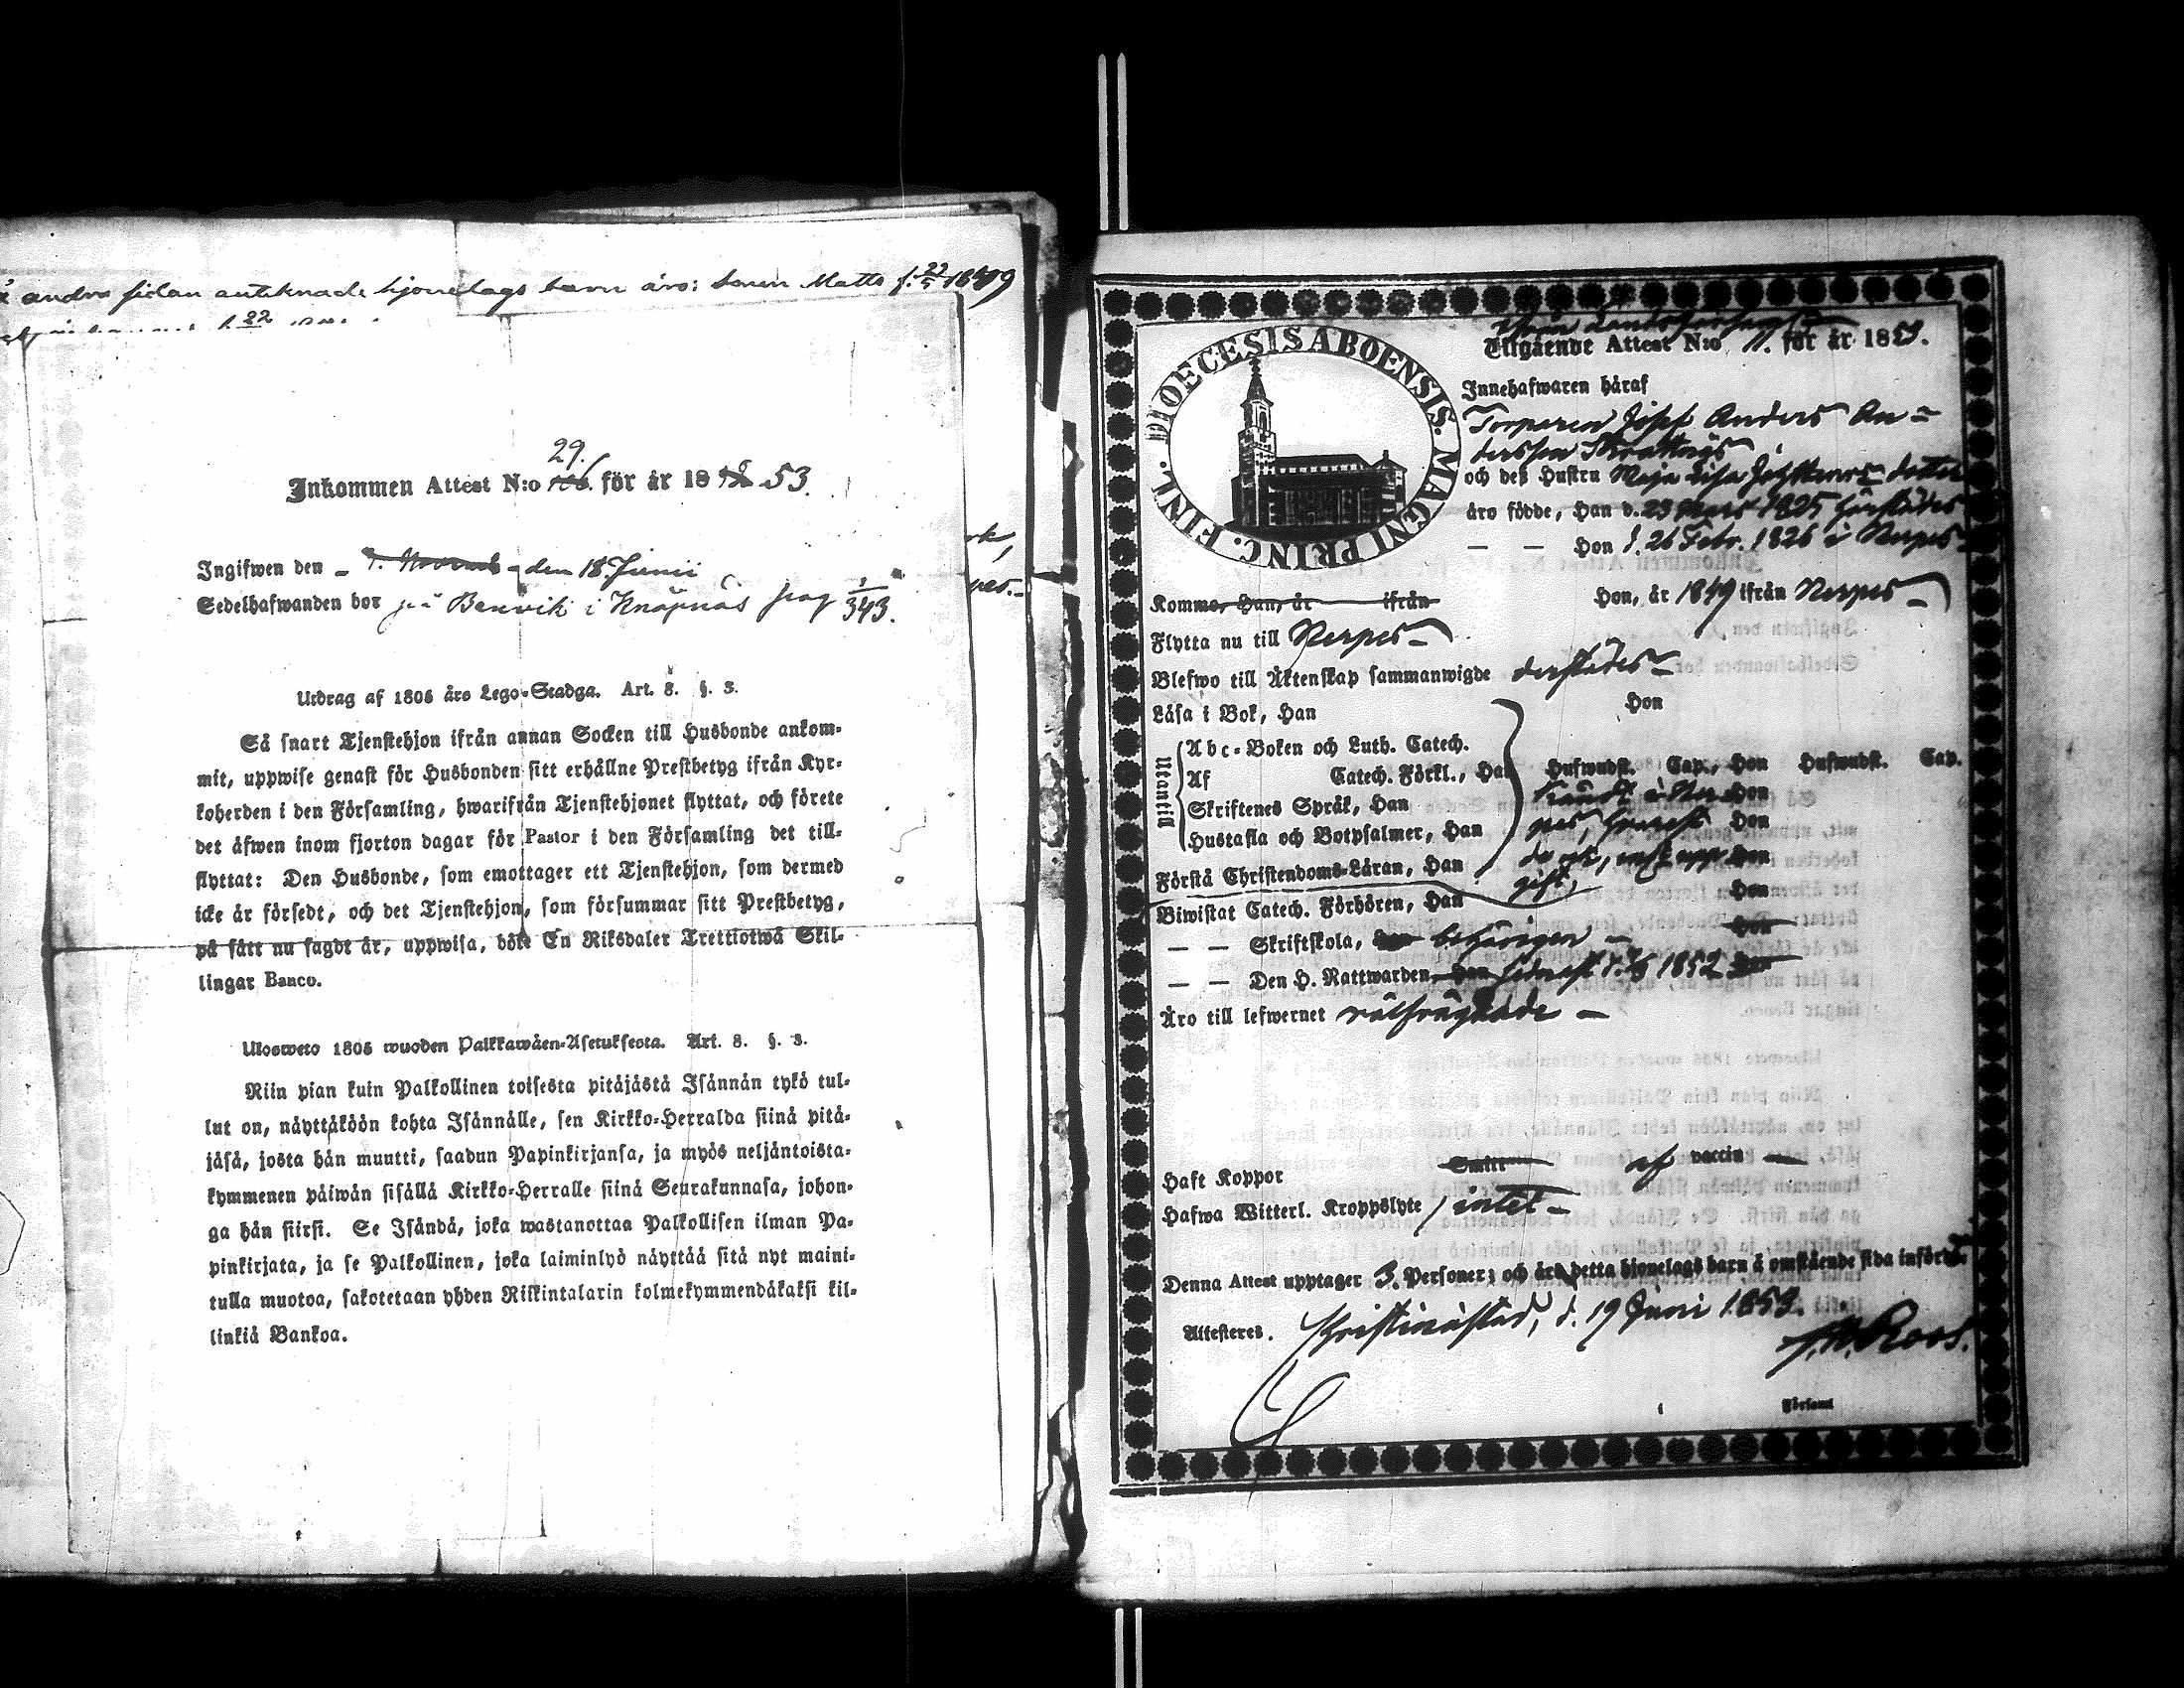 andra sidan antecknade hjonelags barn äro: Sonen Matts f. 22/5 1849
29.
Inkommen Attest N:o 106. för år 18 48 53.
Ingifwen den – 7. Novemb – den 18 Junii
Sedelhafwanden bor på Benvik i Knåpnäs pag 1/343.
Utdrag af 1805 års Lego-Stadga. Art. 8. §. 3.
Så snart Tjenstehjon ifrån annan Socken till Husbonde ankom-
mit, uppwise genast för Husbonden sitt erhållne Prestbetyg ifrån Kyr-
koherden i den Församling, hwarifrån Tjenstehjonet flyttat, och förete
det äfwen inom fjorton dagar för Pastor i den Församling det till-
flyttat: Den Husbonde, som emottager ett Tjenstehjon, som dermed
icke är försedt, och det Tjenstehjon, som försummar sitt Prestbetyg,
på sätt nu sagdt är, uppwisa, böte En Riksdaler Trettiotwå Skil-
lingar Banco.
Ulosweto 1805 wuoden Palkkawäen-Asetuksesta. Art. 8. §. 3.
Niin pian kuin Palkollinen toisesta pitäjästä Isännän tykö tul-
lut on, näyttäköön kohta Isännälle, sen Kirkko-Herralda siinä pitä-
jäsä, josta hän muutti, saadun Papinkirjansa, ja myös neljäntoista-
kymmenen päiwän sisällä Kirkko-Herralle siinä Seurakunnasa, johon-
ga hän siirsi. Se Isändä, joka wastanottaa Palkollisen ilman Pa-
pinkirjata, ja se Palkollinen, joka laiminlyö näyttää sitä nyt maini-
tulla muotoa, sakotetaan yhden Riikintalarin kolmekymmendäkaksi kil-
linkiä Bankoa.
DIOECESIS ABOENSIS. MAGNI PRINC. FINL.
från Landsförsaml.
Utgående Attest N:o 11. för år 1853.
Innehafwaren häraf
Torparen Josef Anders An-
dersson Skrattnäs
och deß Hustru Maja Lisa Dotter
äro födde, Han d. 23 Mars 1825 härstädes
— — Hon d. 26 Febr. 1826 i Nerpes
Kommo, Han, år ifrån Hon, år 1849 ifrån Nerpes
Flytta nu till Nerpes
Blefwo till Äktenskap sammanwigde derstädes
Läsa i Bok, Han Hon
Utantill
Abc-Boken och Luth. Catech.
Af Catech. Förkl., Han Hufwudst. Cap., Hon Hufwudst. Cap.
Skriftenes Språk, Han Hon
Hustafla och Botpsalmer, Han Hon
Förstå Christendoms-Läran, Han Hon
Biwistat Catech. Förhören, Han Hon
— — Skriftskola, Han behörigen – Hon
— — Den H. Nattwarden, Han sednast d. 1852 Hon
Äro till lefwernet välfrägdade –
Haft Koppor Smitt af vaccin
Hafwa Witterl. Kroppslyte intet –
Denna Attest upptager 3. Personer; och äro detta hjonelags barn å omstående sida införda.
Attesteres. Kristinestad, d. 19 Juni 1853.
Roos.
Församl